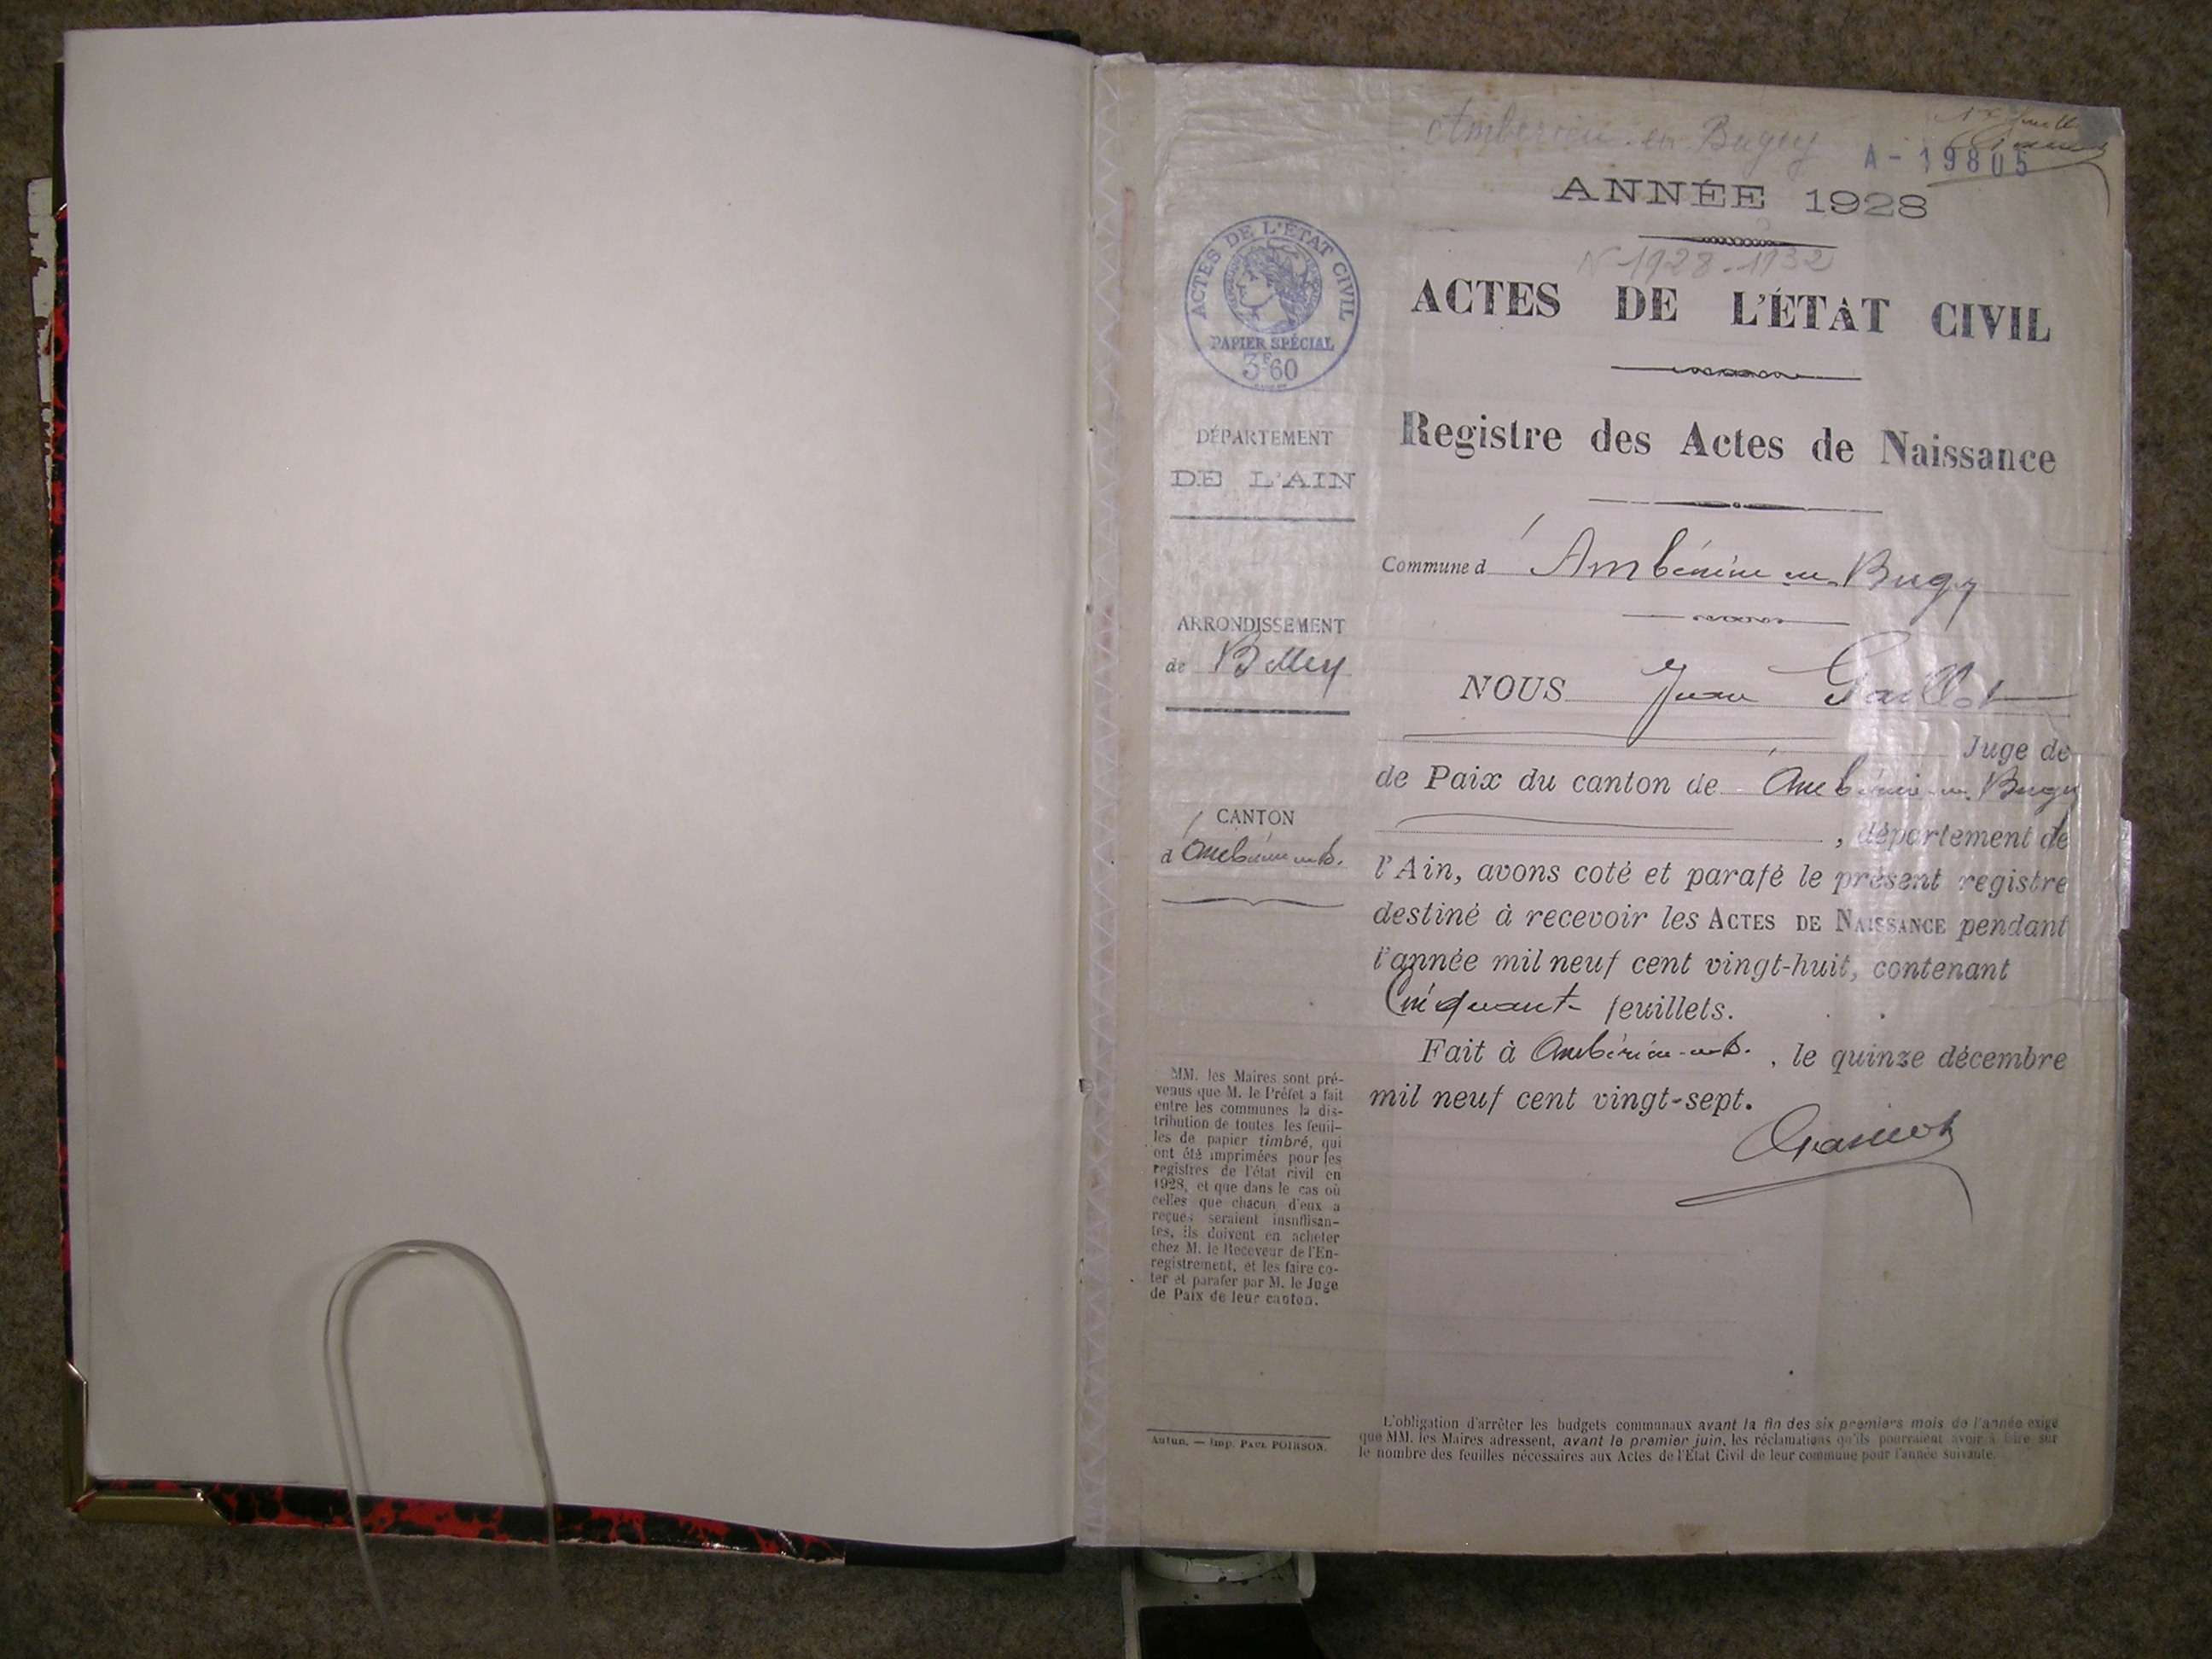 Ambérieu-en-Bugey
A-19805
ANNÉE 1928
N 1928-1932
ACTES DE L'ÉTAT CIVIL
PAPIER SPÉCIAL
3F60
ACTES DE L'ÉTAT CIVIL
Registre des Actes de Naissance
DÉPARTEMENT
DE L'AIN
Commune d'Ambérieu en Bugey
ARRONDISSEMENT
de Belley
NOUS Jean Gaillot
Juge de
de Paix du canton de Ambérieu en Bugey
CANTON
d'Ambérieu en B.
, département de
l'Ain, avons coté et parafé le présent registre
destiné à recevoir les ACTES DE NAISSANCE pendant
l'année mil neuf cent vingt-huit, contenant
Cinquante feuillets.
Fait à Ambérieu-en-B. , le quinze décembre
mil neuf cent vingt-sept.
MM. les Maires sont pré-
venus que M. le Préfet a fait
entre les communes la dis-
tribution de toutes les feuil-
les de papier timbré, qui
ont été imprimées pour les
registres de l'état civil en
1928, et que dans le cas où
celles que chacun d'eux a
reçues seraient insuffisan-
tes, ils doivent en acheter
chez M. le Receveur de l'En-
registrement, et les faire co-
ter et parafer par M. le Juge
de Paix de leur canton.
Autun. — Imp. PAUL POIRSON.
L'obligation d'arrêter les budgets communaux avant la fin des six premiers mois de l'année exige
que MM. les Maires adressent, avant le premier juin, les réclamations qu'ils pourraient avoir à faire sur
le nombre des feuilles nécessaires aux Actes de l'État Civil de leur commune pour l'année suivante.